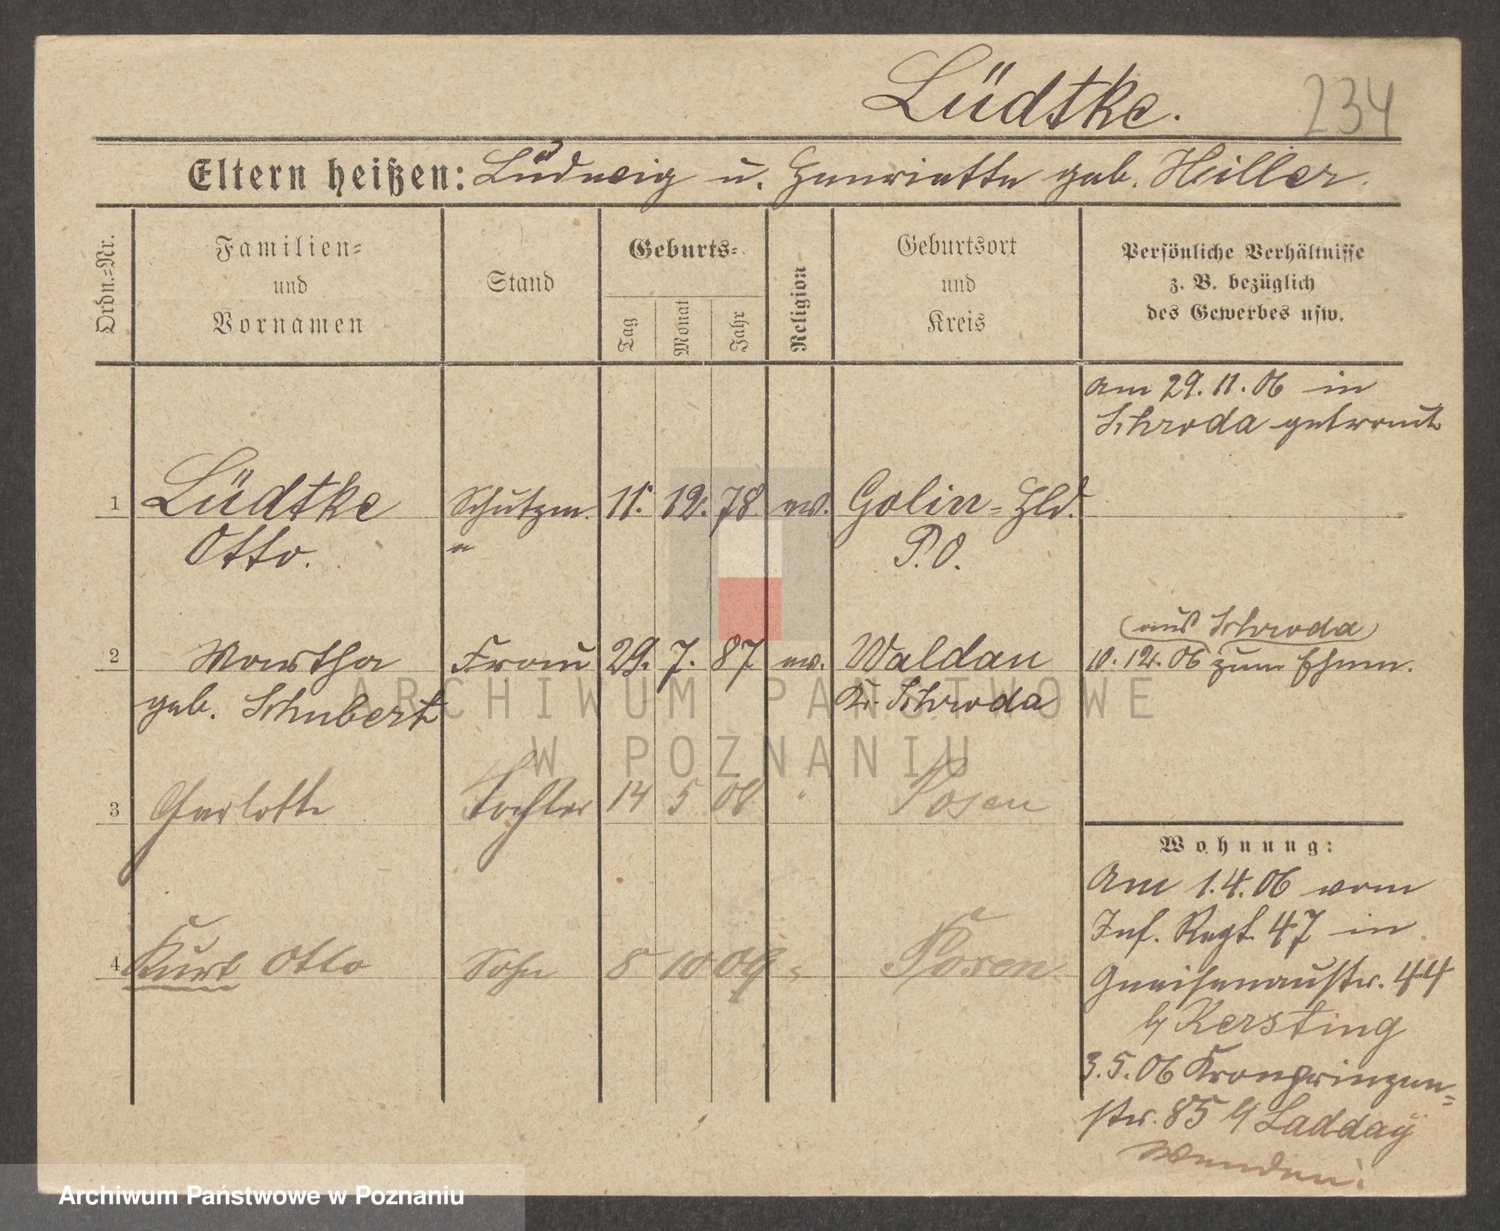 Lüdtke. 234
Eltern heißen: Ludwig u. Henriette geb. Hiller.
Ordn.-Nr.
Familien-
und
Vornamen
Stand
Geburts-
Tag
Monat
Jahr
Religion
Geburtsort
und
Kreis
Persönliche Verhältnisse
z. B. bezüglich
des Gewerbes usw.
am 29.11.06 in
Schroda getraut
1 Lüdtke Schutzm. 11. 12. 78. ev. Golin-Hld.
Otto. P.O.
(aus Schroda)
2 Martha Frau 29. 7. 87 ev. Waldau 10.12.06 zum Ehem.
geb. Schubert Kr. Schroda
ARCHIWUM PAŃSTWOWE
W POZNANIU
3 Charlotte Tochter 14 5 08 Posen
Wohnung:
Am 1.4.06 vom
Inf. Regt. 47 in
4 Kurt Otto Sohn 8 10 09 Posen
Gneisenaustr. 44
b/ Kersting
3.5.06 Kronprinzen-
str. 85 b/ Ladday
Wenden!
Archiwum Państwowe w Poznaniu